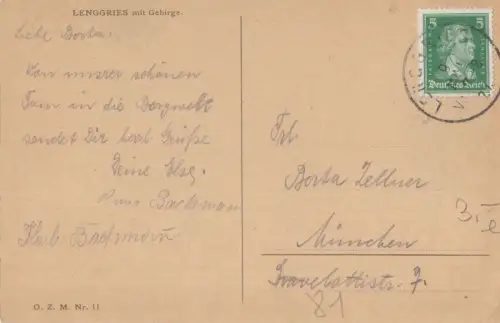 LENGGRIES mit Gebirge.
Liebe Berta.
Von unsrer schönen
Tour in die Bergwelt
sendet Dir herzl. Grüße
Deine Else.
Bachmann
Bachmann
O. Z. M. Nr. 11
5
5
Deutsches Reich
Frl.
Berta Zellner
München
Gravelottestr. 7.
81
3.-e